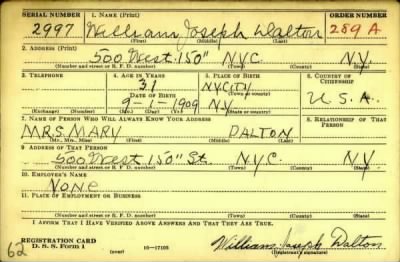 SERIAL NUMBER 1. NAME (Print) ORDER NUMBER
2997 William Joseph Dalton 289 A
(First) (Middle) (Last)
2. ADDRESS (Print)
500 West 150" N.Y.C. N.Y.
(Number and street or R. F. D. number) (Town) (County) (State)
3. TELEPHONE 4. AGE IN YEARS 5. PLACE OF BIRTH 6. COUNTRY OF CITIZENSHIP
31 N.Y.CITY
DATE OF BIRTH (Town or county)
9-1-1909 N.Y. U.S.A.
(Exchange) (Number) (Mo.) (Day) (Yr.) (State or country)
7. NAME OF PERSON WHO WILL ALWAYS KNOW YOUR ADDRESS 8. RELATIONSHIP OF THAT PERSON
MRS. MARY DALTON
(Mr., Mrs., Miss) (First) (Middle) (Last)
9. ADDRESS OF THAT PERSON
500 West 150" St. N.Y.C. N.Y.
(Number and street or R. F. D. number) (Town) (County) (State)
10. EMPLOYER'S NAME
None
11. PLACE OF EMPLOYMENT OR BUSINESS
(Number and street or R. F. D. number) (Town) (County) (State)
I AFFIRM THAT I HAVE VERIFIED ABOVE ANSWERS AND THAT THEY ARE TRUE.
REGISTRATION CARD
D. S. S. Form 1 (over) 16—17105 William Joseph Dalton
(Registrant's signature)
62